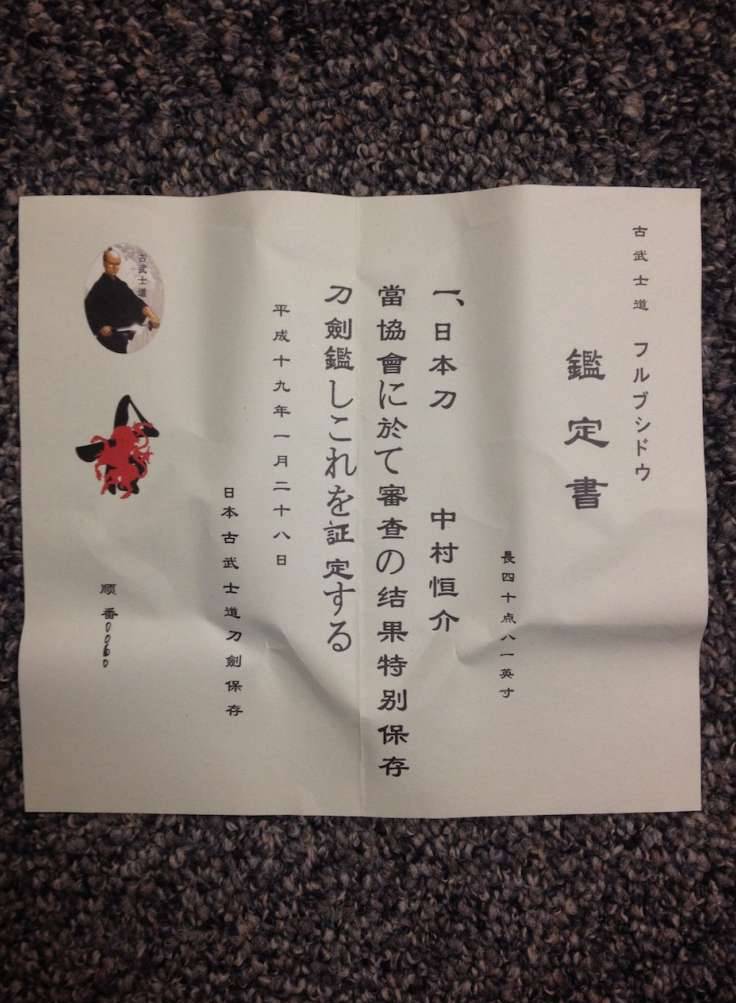 古武士道 フルブシドウ
鑑定書
長四十点八一英寸
一、日本刀 中村恒介
當協會に於て審查の结果特别保存
刀劍鑑しこれを証定する
平成十九年一月二十八日
日本古武士道刀劍保存
古武士道
顺番0060